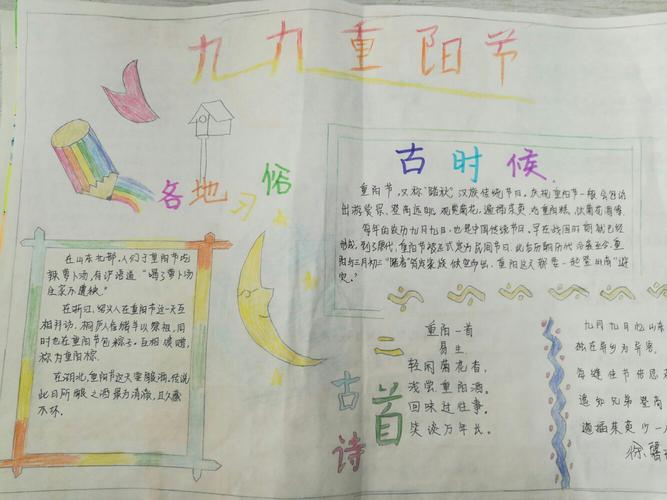 九九重阳节
各地习俗
在山东
人们于重阳节均
银萝卜汤,有谚语道“喝了萝卜汤
全家不遭殃”
在浙江,绍兴人在重阳节这天互
相拜访.桐庐人备猪羊以祭祖,同
时也在重阳节包粽子。互相馈赠,
称为重阳粽.
在湖北,重阳节这天要酿酒.传说
此日所酿之酒最为清冽,且久藏
不坏.
古时候
重阳节,又称“踏秋”,汉族传统节日。庆祝重阳节一般会包括
出游赏景、登高远眺、观赏菊花、遍插茱萸、吃重阳糕、饮菊花酒等.
每年的农历九月九日,也是中国传统节日。早在战国时期就已经
形成,到了唐代,重阳节被正式定为民间节日,此后历朝历代沿袭至今.重
阳与三月初三“踏春”皆是家族倾室而出.重阳这天都要一起登高“避
灾。”
二首古诗
重阳一首
易生
轻闲菊花香,
浅尝重阳酒。
回味过往事.
笑谈万年长。
九月九日忆山东
独在异乡为异客,
每逢佳节倍思
遥知兄弟登高
遍插茱萸少一